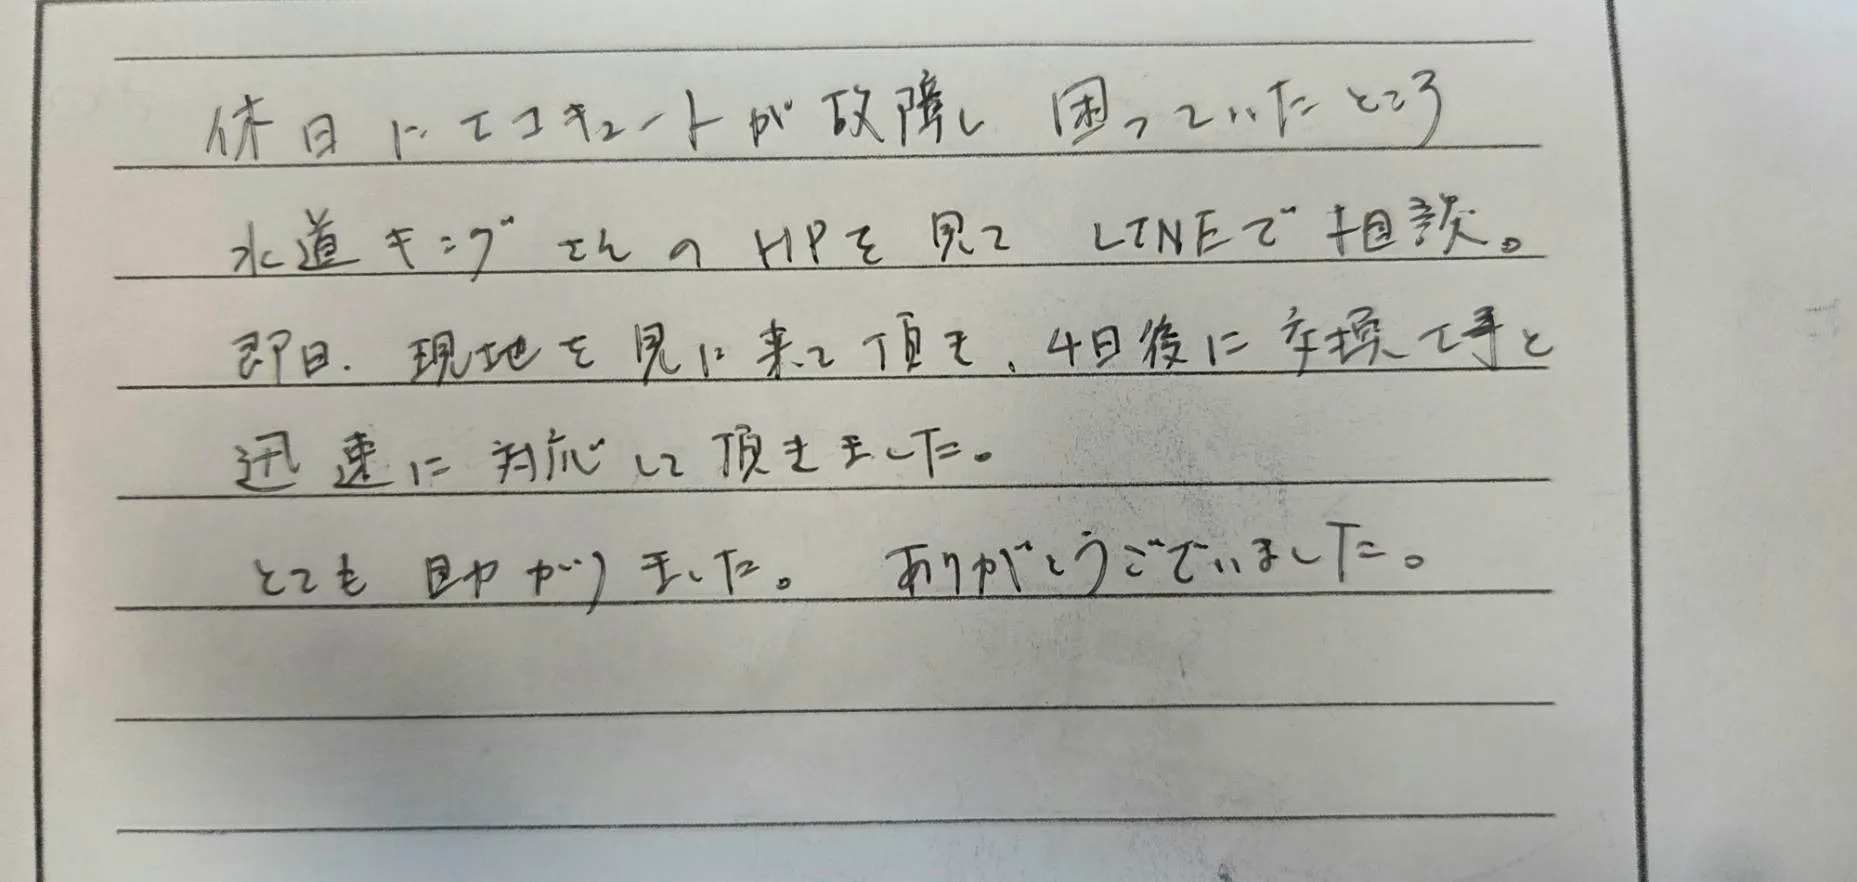 休日にエコキュートが故障し 困っていたところ
水道キングさんのHPを見て LINEで相談。
即日、現地を見に来て頂き、4日後に交換工事と
迅速に対応して頂きました。
とても助かりました。 ありがとうございました。